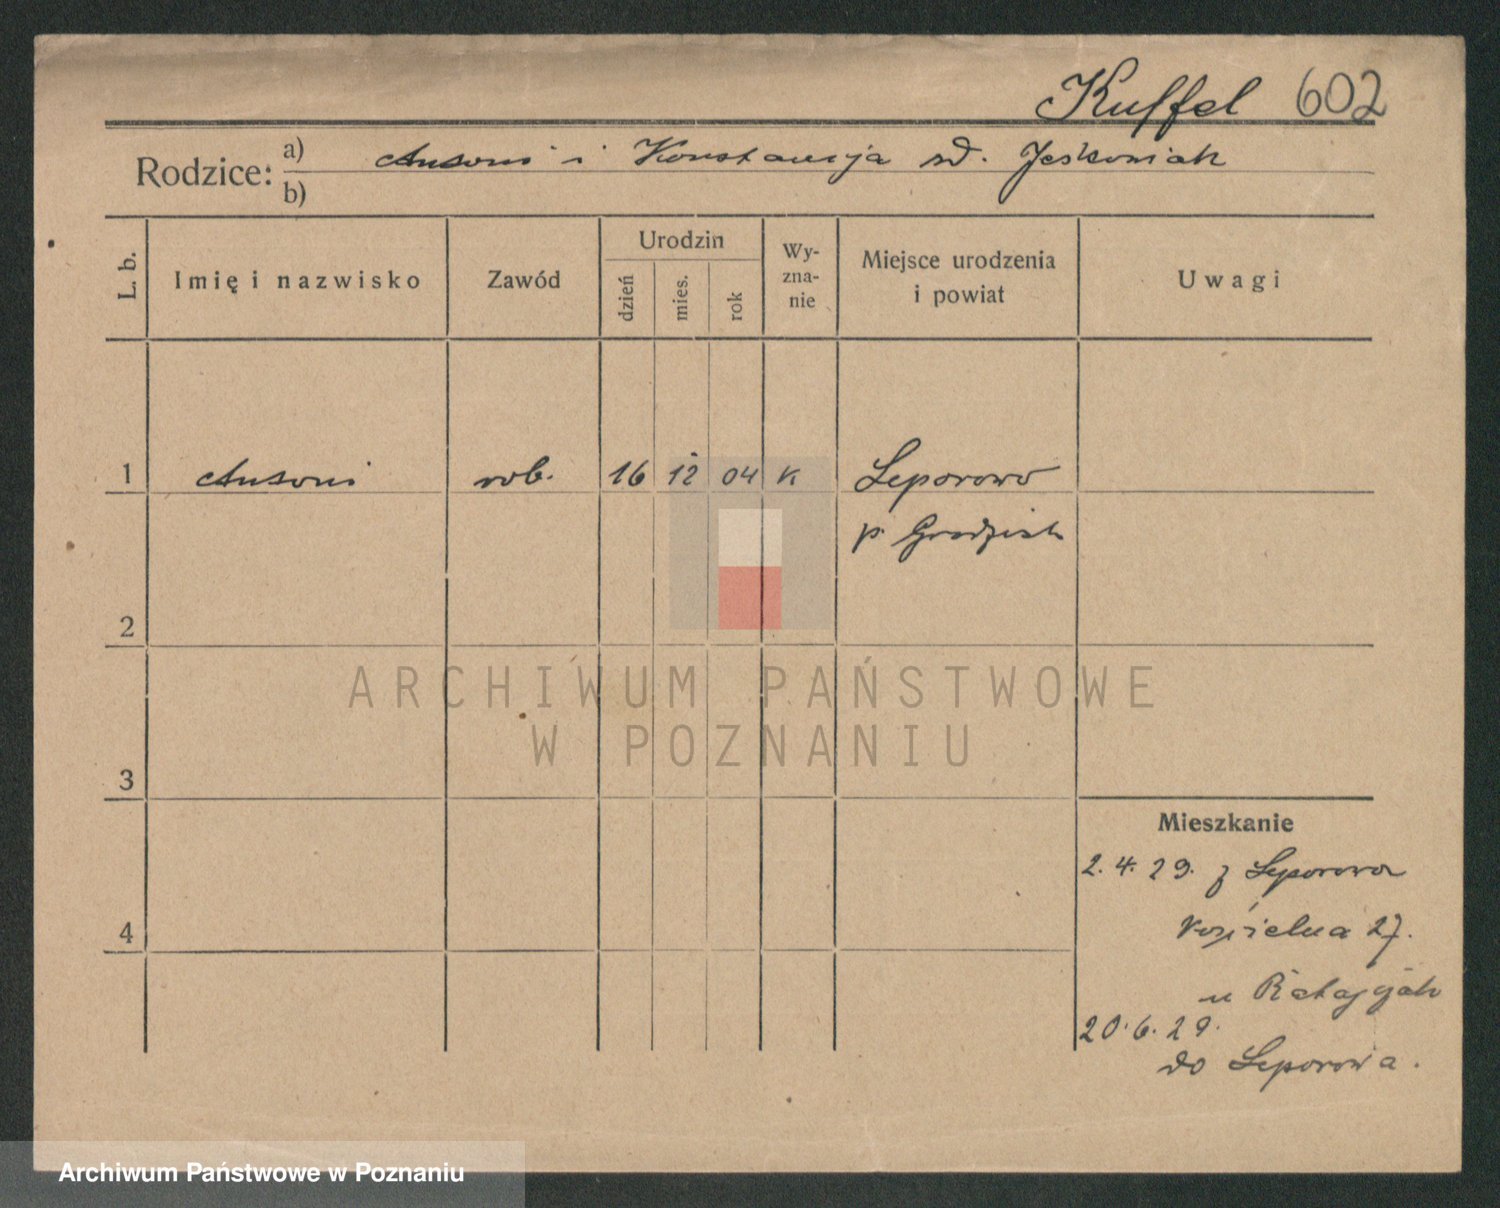 Kuffel 602
Rodzice: a) Antoni i Konstancja zd. Jeskoniak
b)
L. b.
Imię i nazwisko
Zawód
Urodzin
dzień
mies.
rok
Wy-
zna-
nie
Miejsce urodzenia
i powiat
Uwagi
1 Antoni rob. 16 12 04 K Leporowo
p. Grodzisk
2
ARCHIWUM PAŃSTWOWE
W POZNANIU
3
Mieszkanie
2.4.29. z Leporowa
Kościelna 27.
4
u
20.6.29.
do Leporowa.
Archiwum Państwowe w Poznaniu